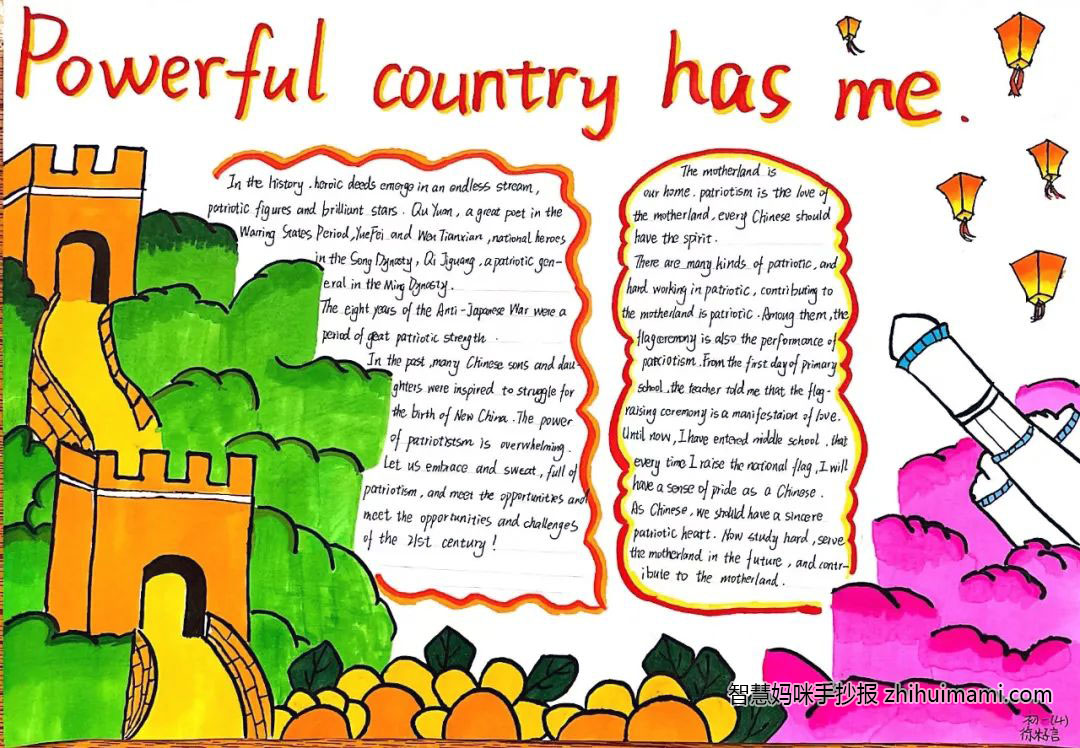 Powerful country has me.
In the history .heroic deeds emerge in an endless stream,
patriotic figures and brilliant stars. Qu Yuan, a great poet in the
Warring States Period, Yue Fei and Wen Tianxian, national heroes
in the Song Dynasty, Qi Jiguang, a patriotic gen-
eral in the Ming Dynasty.
The eight years of the Anti-Japanese War were a
period of great patriotic strength.
In the past, many Chinese sons and dau-
ghters were inspired to struggle for
the birth of New China. The power
of patriotistsm is overwhelming.
Let us embrace and sweat, full of
patriotism, and meet the opportunities and
meet the opportunities and challenges
of the 21st century!
The motherland is
our home. patriotism is the love of
the motherland, every Chinese should
have the spirit.
There are many kinds of patriotic, and
hard working in patriotic, contributing to
the motherland is patriotic. Among them, the
flag ceremony is also the performance of
patriotism. From the first day of primary
school, the teacher told me that the flag-
raising ceremony is a manifestaion of love.
Until now, I have entered middle school, that
every time I raise the national flag, I will
have a sense of pride as a Chinese.
As Chinese, we should have a sincere
patriotic heart. Now study hard, serve
the motherland in the future, and contr-
ibute to the motherland.
智慧妈咪手抄报 zhihuimami.com
初一(4)